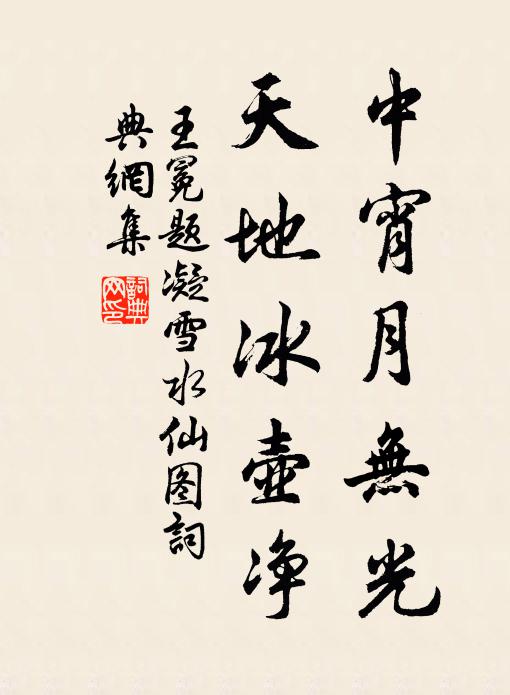 中宵月無光
天地冰壺净
王冕题凝雪水仙图詞
典網集
詞典
网印